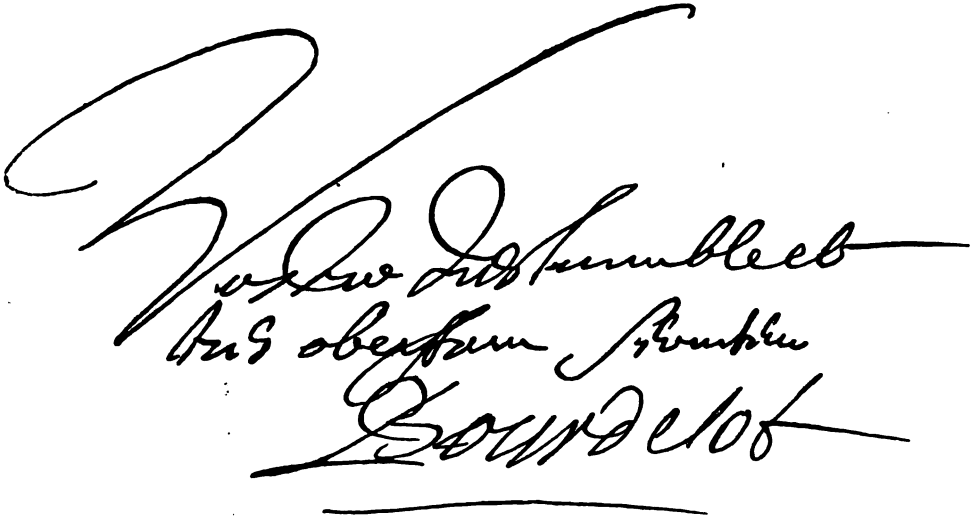 Vostre tres humble et
tres obeissant serviteur
Bourdelot